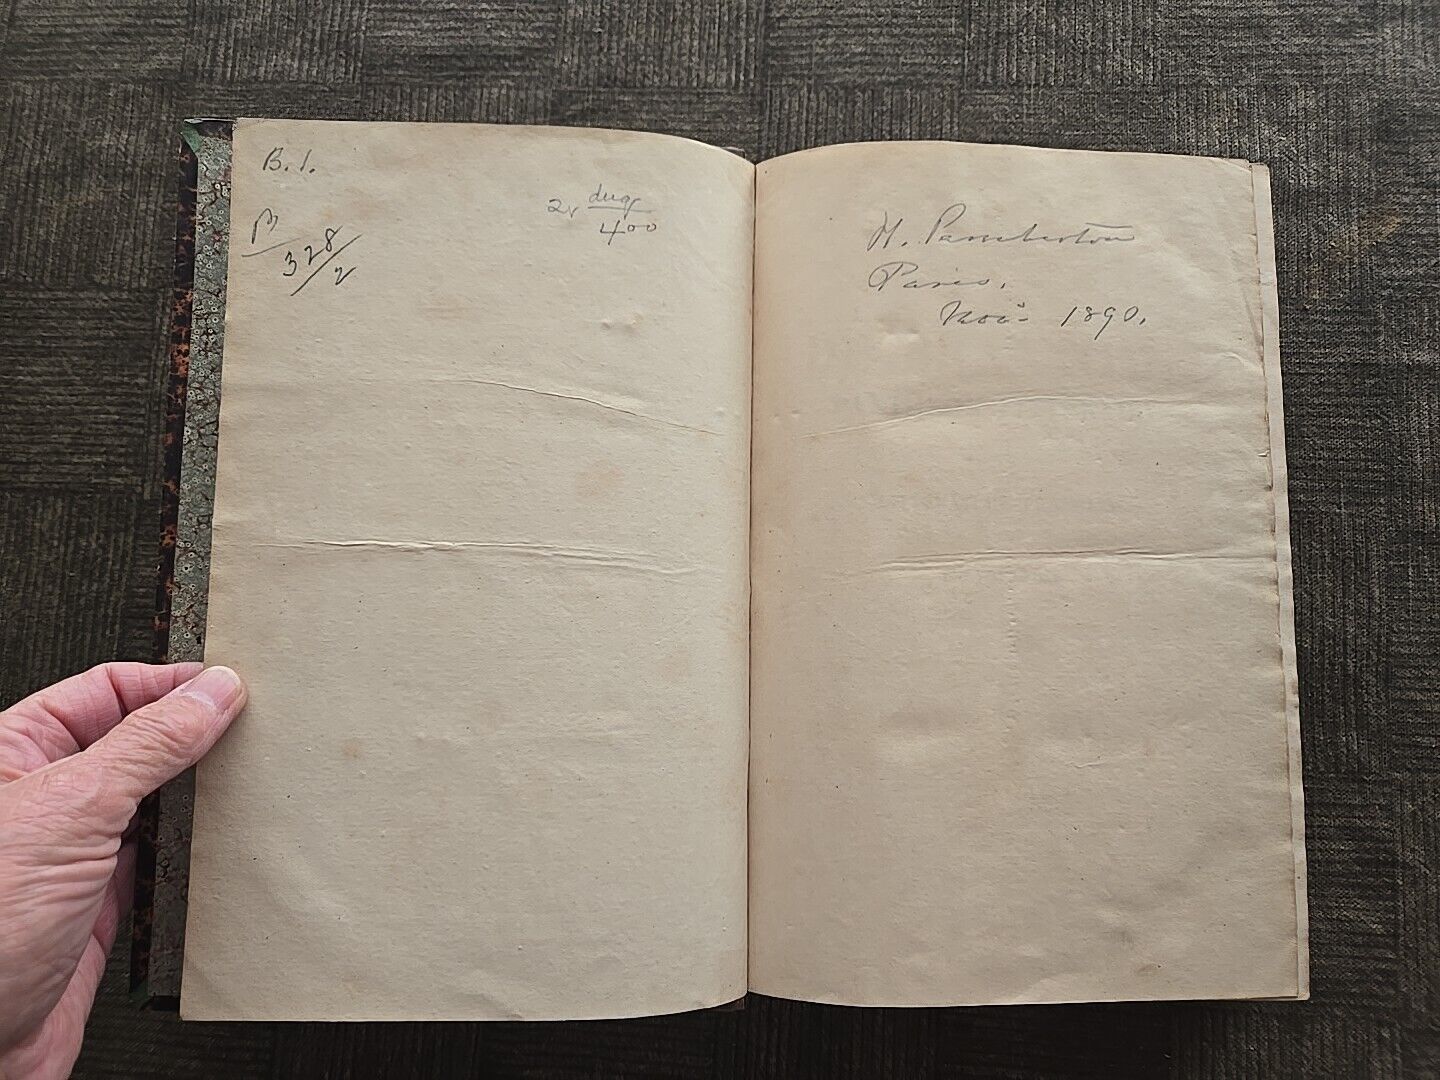 B. 1.
328/2
2v
400
H. Pemberton
Paris.
Nov. 1890.